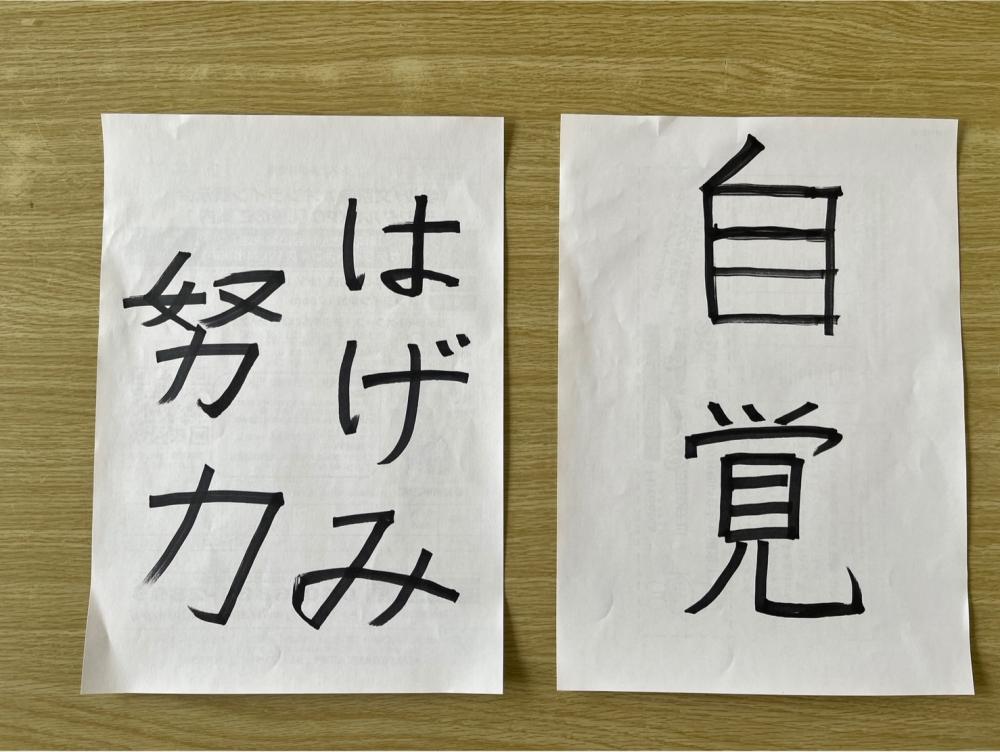 自覚
はげみ
努力